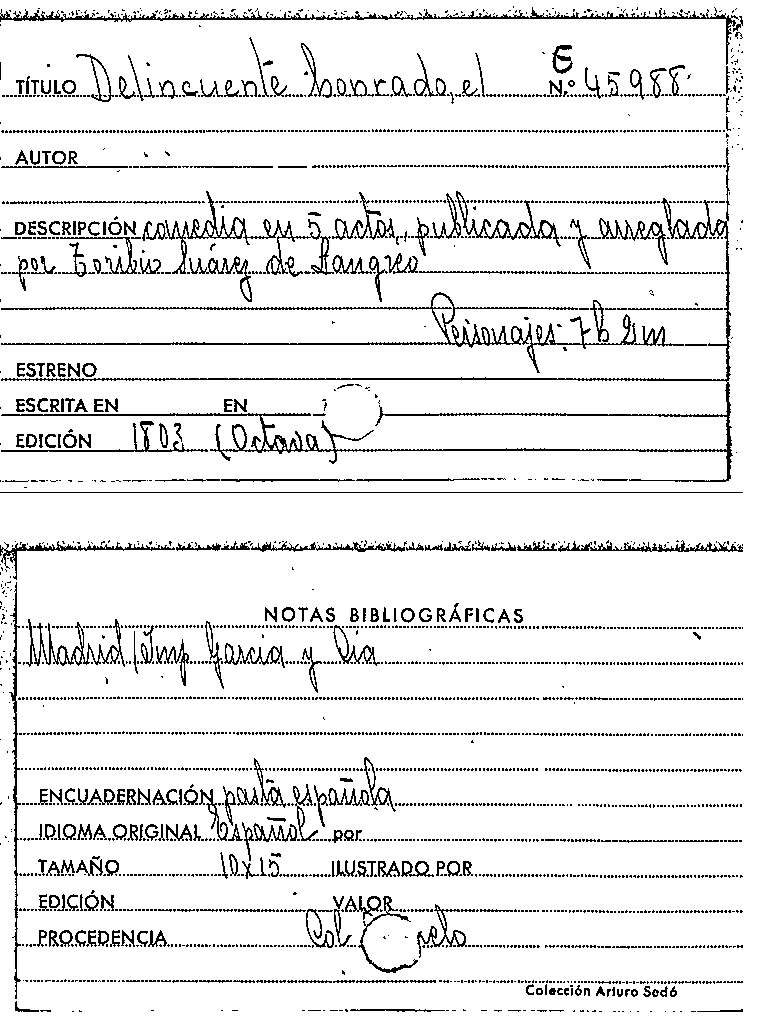 E
TÍTULO Delincuente honrado, el N.º 45988
AUTOR
DESCRIPCIÓN comedia en 5 actos, publicada y arreglada
por Toribio Suárez de Langreo
Personajes: 7h 2m
ESTRENO
ESCRITA EN EN
EDICIÓN 1803 (Octava)
NOTAS BIBLIOGRÁFICAS
Madrid/Imp Garcia y Cia
ENCUADERNACIÓN pasta española
IDIOMA ORIGINAL Español por
TAMAÑO 10x15 ILUSTRADO POR
EDICIÓN VALOR
PROCEDENCIA Col
Colección Arturo Sedó